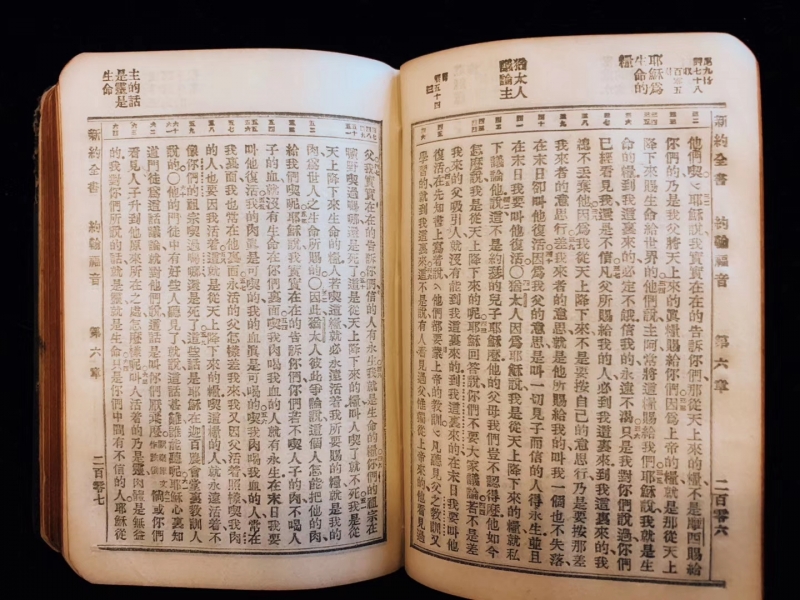 耶穌爲生命的糧
猶太人議論主
新約全書 約翰福音 第六章 二百零六
他們喫〉耶穌說我實實在在的告訴你們那從天上來的糧不是摩西賜給
你們的乃是我父將天上來的眞糧賜給你們因爲上帝的糧就是那從天上
降下來賜生命給世界的他們說主阿常將這糧賜給我們耶穌說我就是生
命的糧到我這裏來的必定不餓信我的永遠不渴只是我對你們說過你們
已經看見我還是不信凡父所賜給我的人必到我這裏來到我這裏來的我
總不丟棄他因爲我從天上降下來不是要按自己的意思行乃是要按那差
我來者的意思行差我來者的意思就是他所賜給我的叫我一個也不失落
在末日卻叫他復活因爲我父的意思是叫一切見子而信的人得永生並且
在末日我要叫他復活〇猶太人因爲耶穌說我是從天上降下來的糧就私
下議論他說這不是約瑟的兒子耶穌麽他的父母我們豈不認得麽他如今
怎麽說我是從天上降下來的呢耶穌回答說你們不要大家議論若不是差
我來的父吸引人就沒有能到我這裏來的到我這裏來的在末日我要叫他
復活在先知書上寫着說〈他們都要蒙上帝的教訓〉凡聽見父之教訓又
學習的就到我這裏來這不是說有人看見過父惟獨從上帝來的他看見過
主的話是靈是生命
父我實實在在的告訴你們信的人有永生我就是生命的糧你們的祖宗在
曠野喫過嗎哪還是死了這是從天上降下來的糧叫人喫了就不死我是從
天上降下來生命的糧人若喫這糧就必永遠活着我所要賜的糧就是我的
肉爲世人之生命所賜的〇因此猶太人彼此爭論說這個人怎能把他的肉
給我們喫呢耶穌說我實實在在的告訴你們你們若不喫人子的肉不喝人
子的血就沒有生命在你們裏面喫我肉喝我血的人就有永生在末日我要
叫他復活我的肉眞是可喫的我的血眞是可喝的喫我肉喝我血的人常在
我裏面我也常在他裏面永活的父怎樣差我來我又因父活着照樣喫我肉
的人也要因我活着這就是從天上降下來的糧喫這糧的人就永遠活着不
像你們的祖宗喫過嗎哪還是死了這些話是耶穌在迦百農會堂裏教訓人
說的〇他的門徒中有好些人聽見了就說這話甚難誰能聽呢耶穌心裏知
道門徒爲這話議論就對他們說這話是叫你們厭棄麽倘或你們
看見人子升到他原來所在之處怎麽樣呢叫人活着的乃是靈肉體是無益
的我對你們所說的話就是靈就是生命只是你們中間有不信的人耶穌從
新約全書 約翰福音 第六章 二百零七